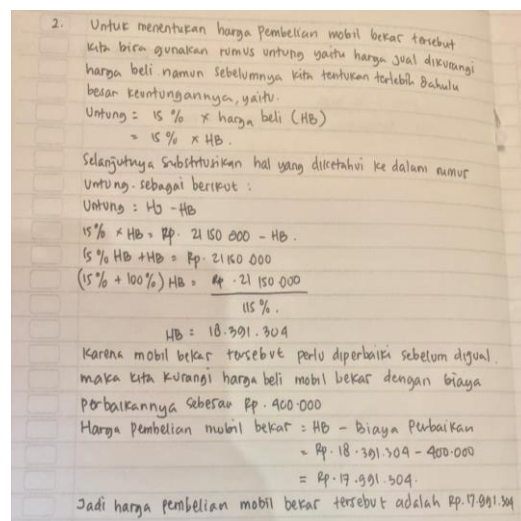 2. Untuk menentukan harga pembelian mobil bekas tersebut
kita bisa gunakan rumus untung yaitu harga jual dikurangi
harga beli namun sebelumnya kita tentukan terlebih dahulu
besar keuntungannya, yaitu.
Untung = 15 % x harga beli (HB)
= 15 % x HB.
Selanjutnya substitusikan hal yang diketahui ke dalam rumus
untung. sebagai berikut :
Untung : HJ - HB
15% x HB = Rp. 21 150 000 - HB.
15% HB + HB = Rp. 21150 000
(15% + 100%) HB = Rp. 21 150 000
115%.
HB = 18.391.304
Karena mobil bekas tersebut perlu diperbaiki sebelum dijual.
maka kita kurangi harga beli mobil bekas dengan biaya
perbaikannya sebesar Rp. 400.000
Harga Pembelian mobil bekas : HB - Biaya Perbaikan
= Rp. 18.391.304 - 400.000
= Rp. 17.991.304.
Jadi harga pembelian mobil bekas tersebut adalah Rp.17.991.304